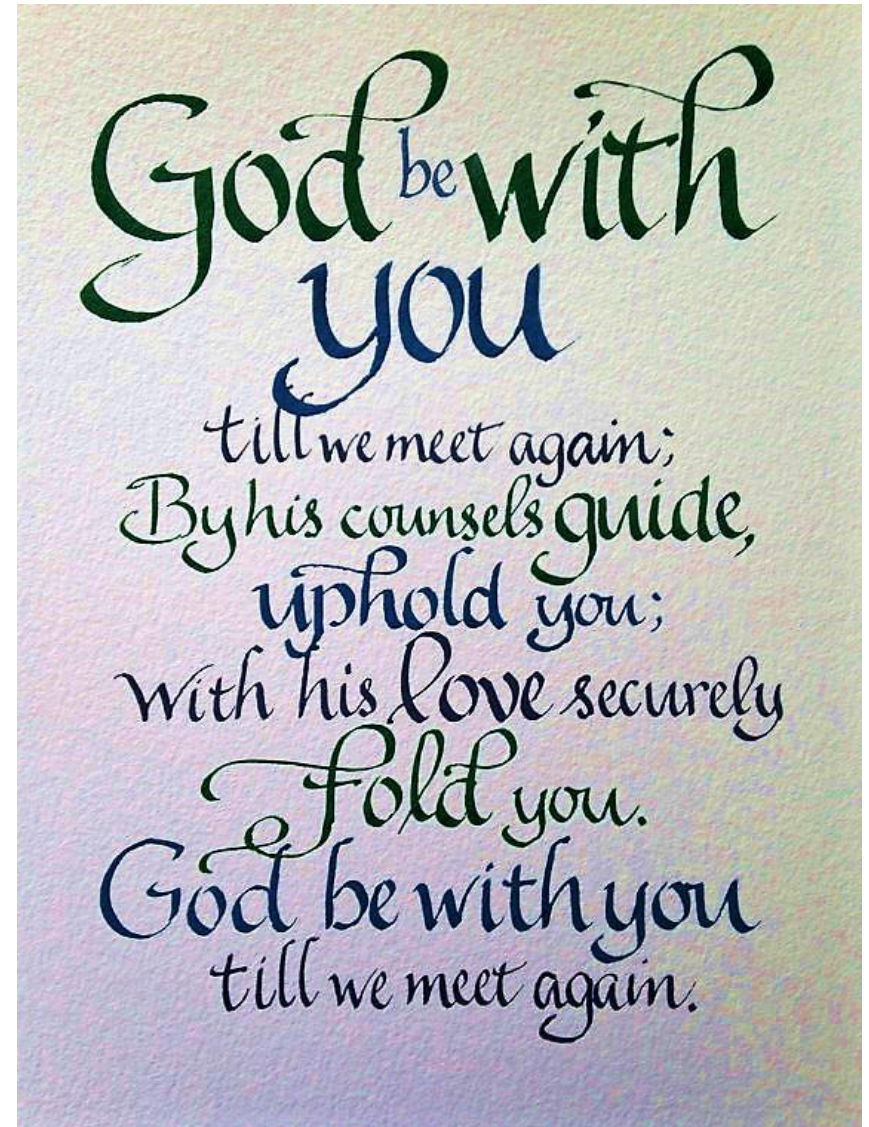 God be with
you
till we meet again;
By his counsels guide,
uphold you;
With his love securely
fold you.
God be with you
till we meet again.